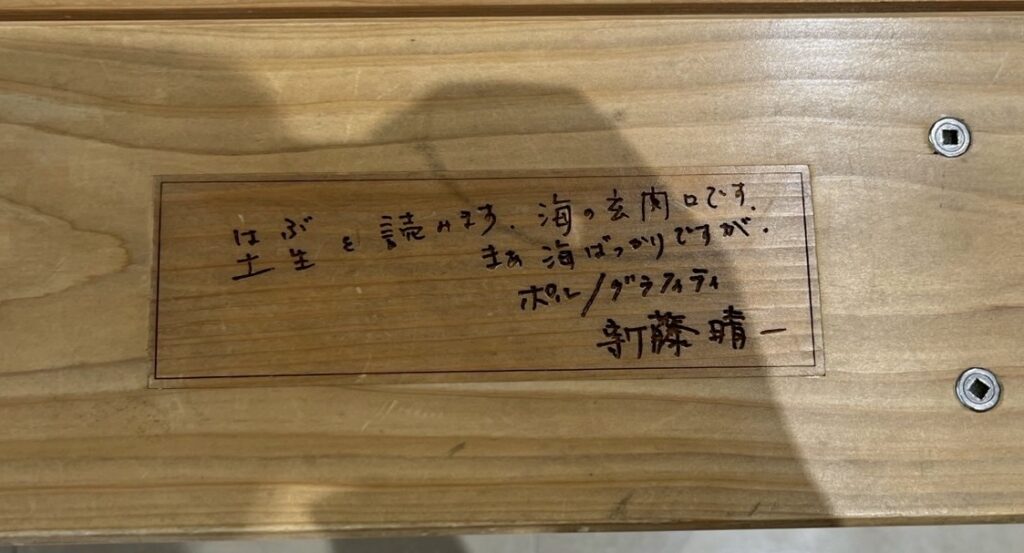 はぶ
土生と読みます。海の玄関口です。
まあ海ばっかりですが。
ポルノグラフィティ
新藤晴一